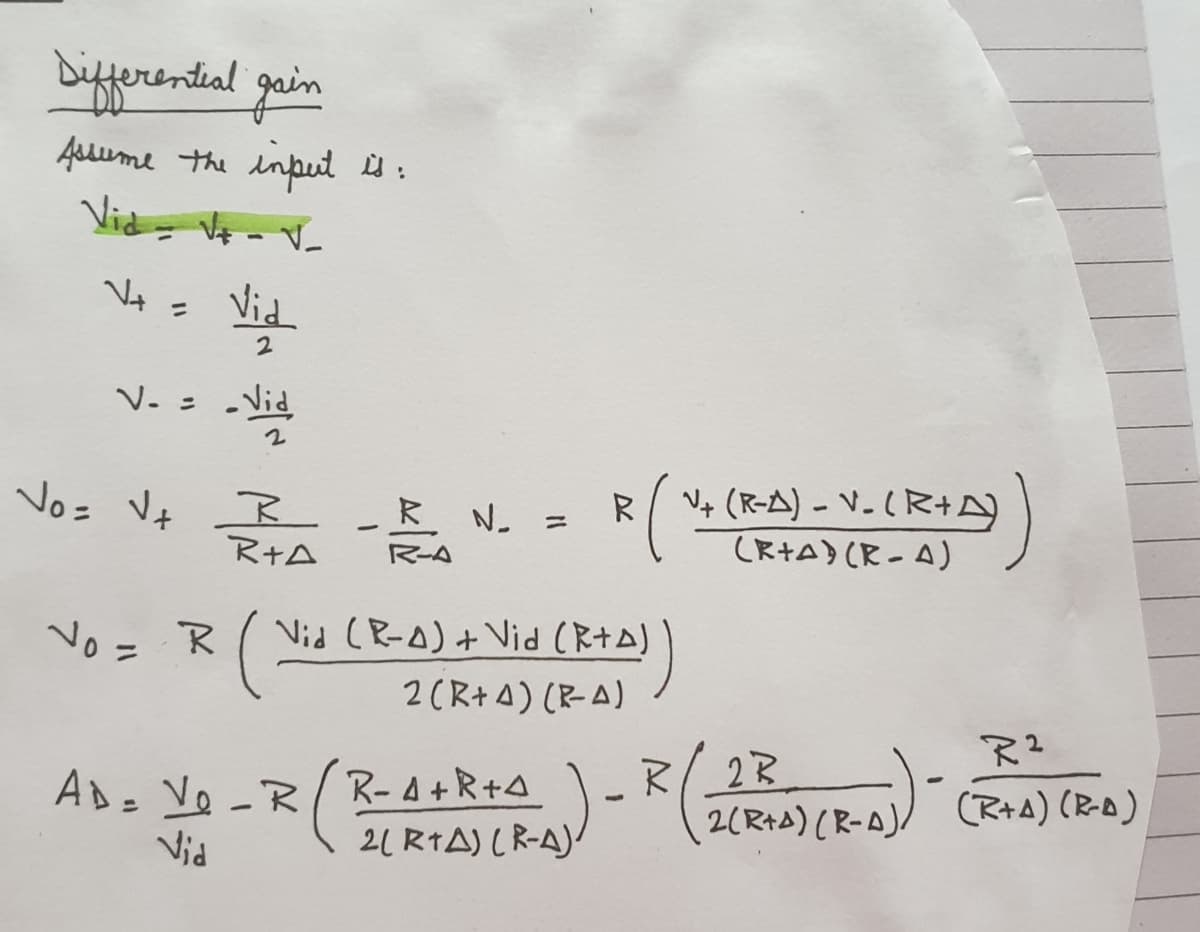 Differential gain
Assume the input is :
Vid = V+ - V-
V+ = Vid/2
V- = -Vid/2
Vo = V+ R/(R+Δ) - R/(R-Δ) V- = R( (V+ (R-Δ) - V- (R+Δ))/((R+Δ)(R-Δ)) )
Vo = R( (Vid (R-Δ) + Vid (R+Δ))/(2(R+Δ)(R-Δ)) )
AD = Vo/Vid - R( (R-Δ+R+Δ)/(2(R+Δ)(R-Δ)) ) - R( 2R/(2(R+Δ)(R-Δ)) ) - R²/((R+Δ)(R-Δ))